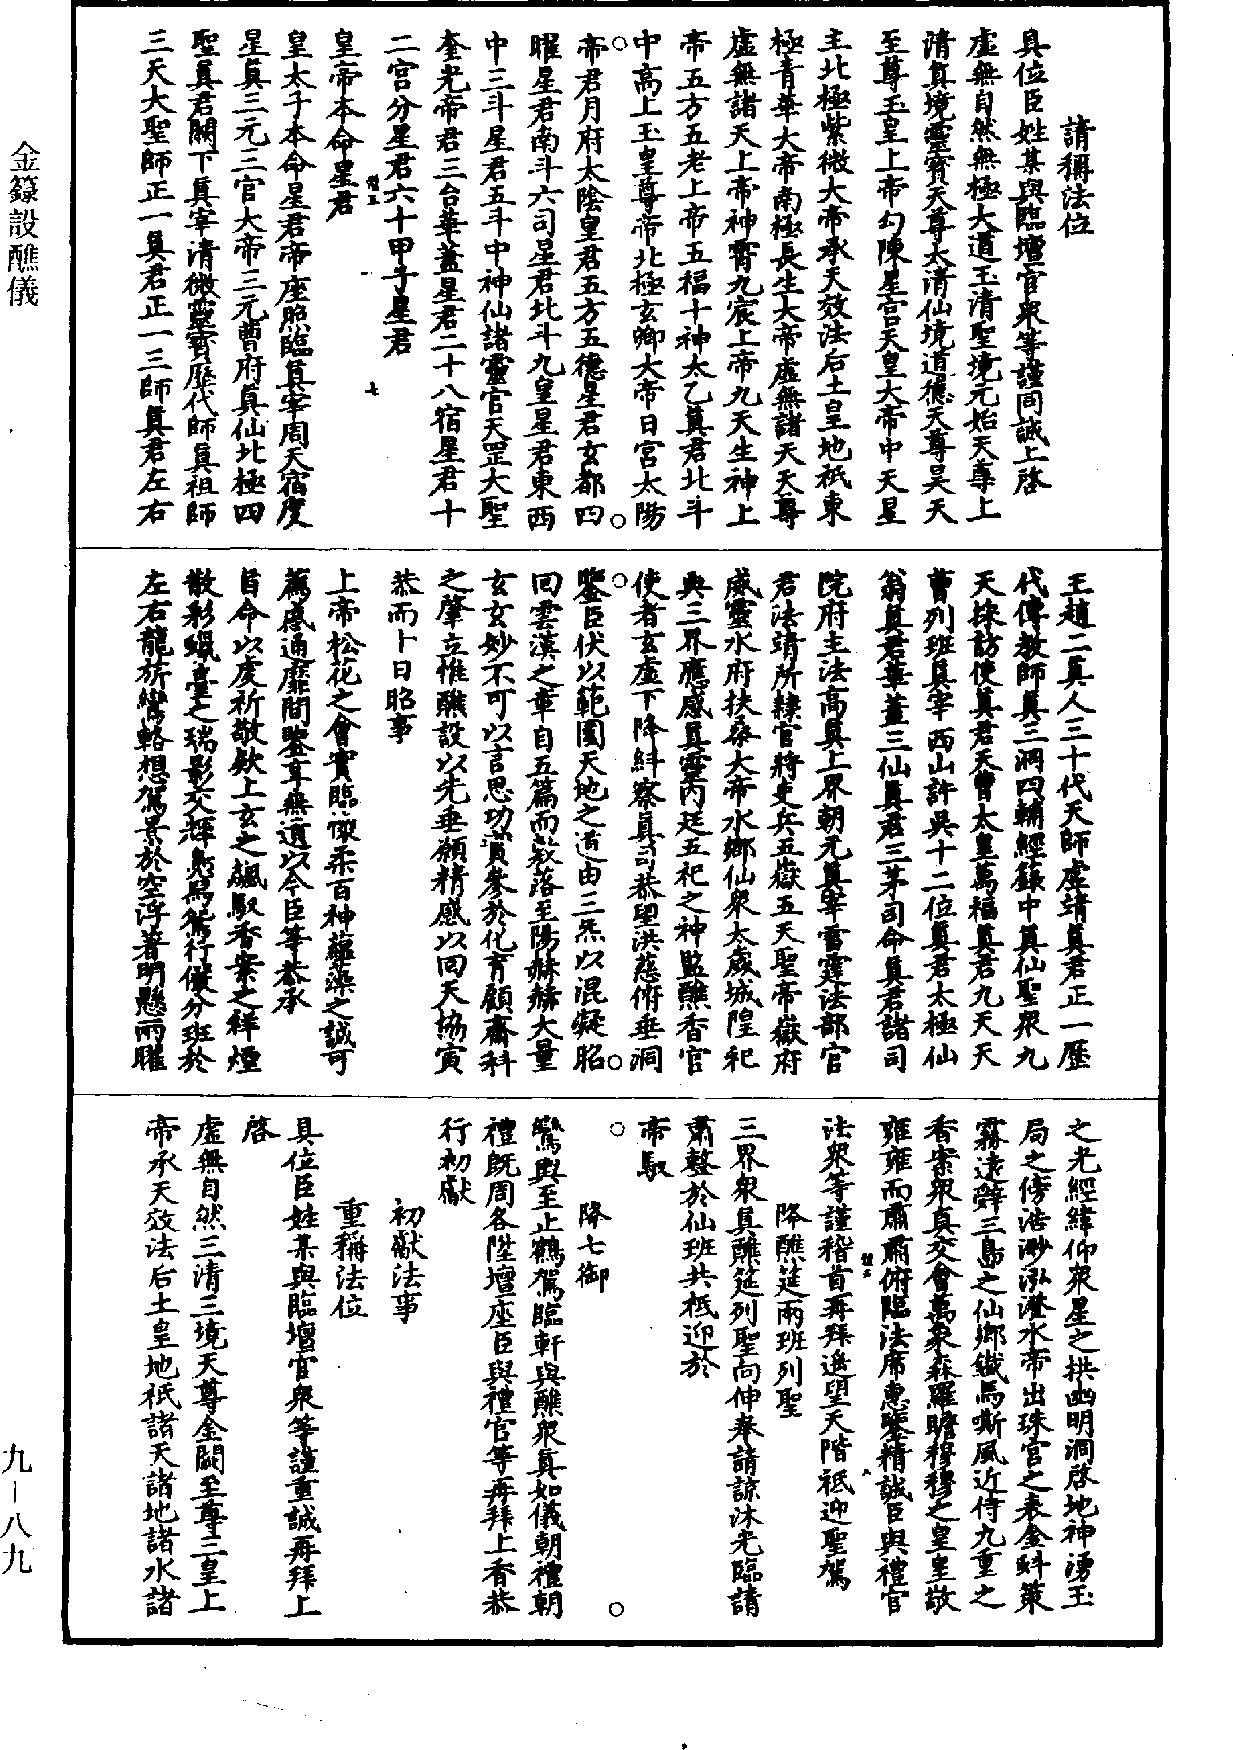 請稱法位
具位臣姓某與臨壇官衆等謹同誠上啓
虛無自然無極大道玉清聖境元始天尊上
清真境靈寶天尊太清仙境道德天尊昊天
至尊玉皇上帝勾陳星宫天皇大帝中天星
主北極紫微大帝承天效法后土皇地祇東
極青華大帝南極長生大帝虛無諸天天尊
虛無諸天上帝神霄九宸上帝九天生神上
帝五方五老上帝五福十神太乙真君北斗
中高上玉皇尊帝北極玄卿大帝日宮太陽
帝君月府太陰皇君五方五德星君玄都四
曜星君南斗六司星君北斗九皇星君東西
中三斗星君五斗中神仙諸靈官天罡大聖
奎光帝君三台華蓋星君二十八宿星君十
二宮分星君六十甲子星君
皇帝本命星君
皇太子本命星君帝座照臨真宰周天宿度
星真三元三官大帝三元曹府真仙北極四
聖真君闕下真宰清微靈寶歷代師真祖師
三天大聖師正一真君正一三師真君左右
王趙二真人三十代天師虛靖真君正一歷
代傳教師真三洞四輔經籙中真仙聖衆九
天採訪使真君天曹太皇萬福真君九天天
曹列班真宰西山許吳十二位真君太極仙
翁真君華蓋三仙真君三茅司命真君諸司
院府主法高真上界朝元真宰雷霆法部官
君法靖所隸官將吏兵五嶽五天聖帝嶽府
威靈水府扶桑大帝水鄉仙衆太歲城隍祀
典三界應感真靈內廷五祀之神監醮香官
使者玄虛下降糾察真司恭望洪慈俯垂洞
鑒臣伏以範圍天地之道由三炁以混凝昭
回雲漢之章自五篇而敷落至陽赫赫大量
玄玄妙不可以言思功實參於化育顧齋科
之肇立惟醮設以先垂願精感以回天協寅
恭而卜日昭事
上帝松花之會實臨懷柔百神蘊藻之誠可
薦感通靡間鑒享無遺以今臣等恭承
旨命以虔祈敬欵上玄之飆馭香案之祥煙
散彩蠟臺之瑞影交輝鳧舄鴛行儼分班於
左右龍旂鸞輅想駕景於空浮著明懸兩曜
之光經緯仰衆星之拱幽明洞啓地神湧玉
局之傍浩渺泓澄水帝出珠宮之表金虯策
霧遠辭三島之仙鄉鐵馬嘶風近侍九重之
香案衆真交會萬象森羅瞻穆穆之皇皇敬
雍雍而肅肅俯臨法席惠鑒精誠臣與禮官
法衆等謹稽首再拜遥望天階祗迎聖駕
降醮筵兩班列聖
三界衆真醮筵列聖向伸奉請諒沐光臨請
肅整於仙班共祗迎於
帝馭
降七御
鸞輿至止鶴駕臨軒與醮衆真如儀朝禮朝
禮既周各陞壇座臣與禮官等再拜上香恭
行初獻
初獻法事
重稱法位
具位臣姓某與臨壇官衆等謹重誠再拜上
啓
虛無自然三清三境天尊金闕至尊三皇上
帝承天效法后土皇地祇諸天諸地諸水諸
金籙設醮儀
九－八九